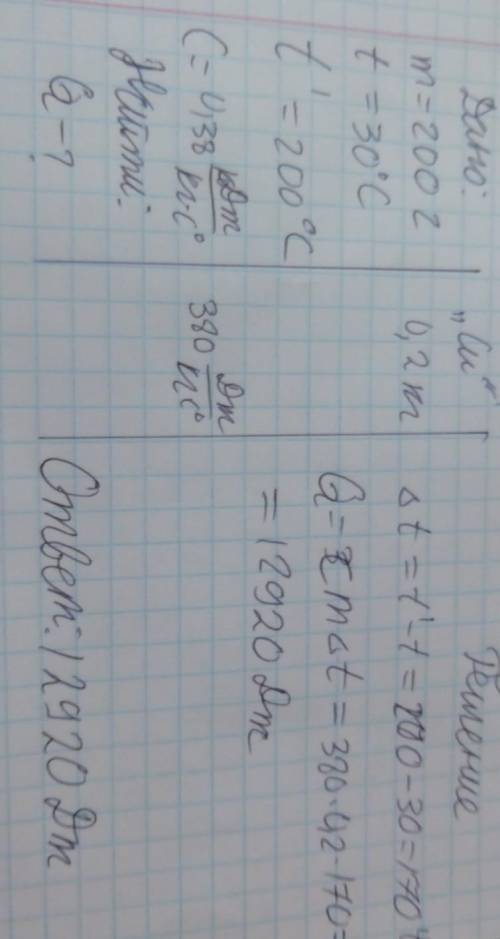 Дано:
m = 200 г
t = 30°C
t' = 200°C
C = 0,38 кДж/кг·C°
Найти:
Q - ?
"Си"
0,2 кг
380 Дж/кгC°
Решение
Δt = t' - t = 200 - 30 = 170°
Q = cmΔt = 380·0,2·170 =
= 12920 Дж
Ответ: 12920 Дж